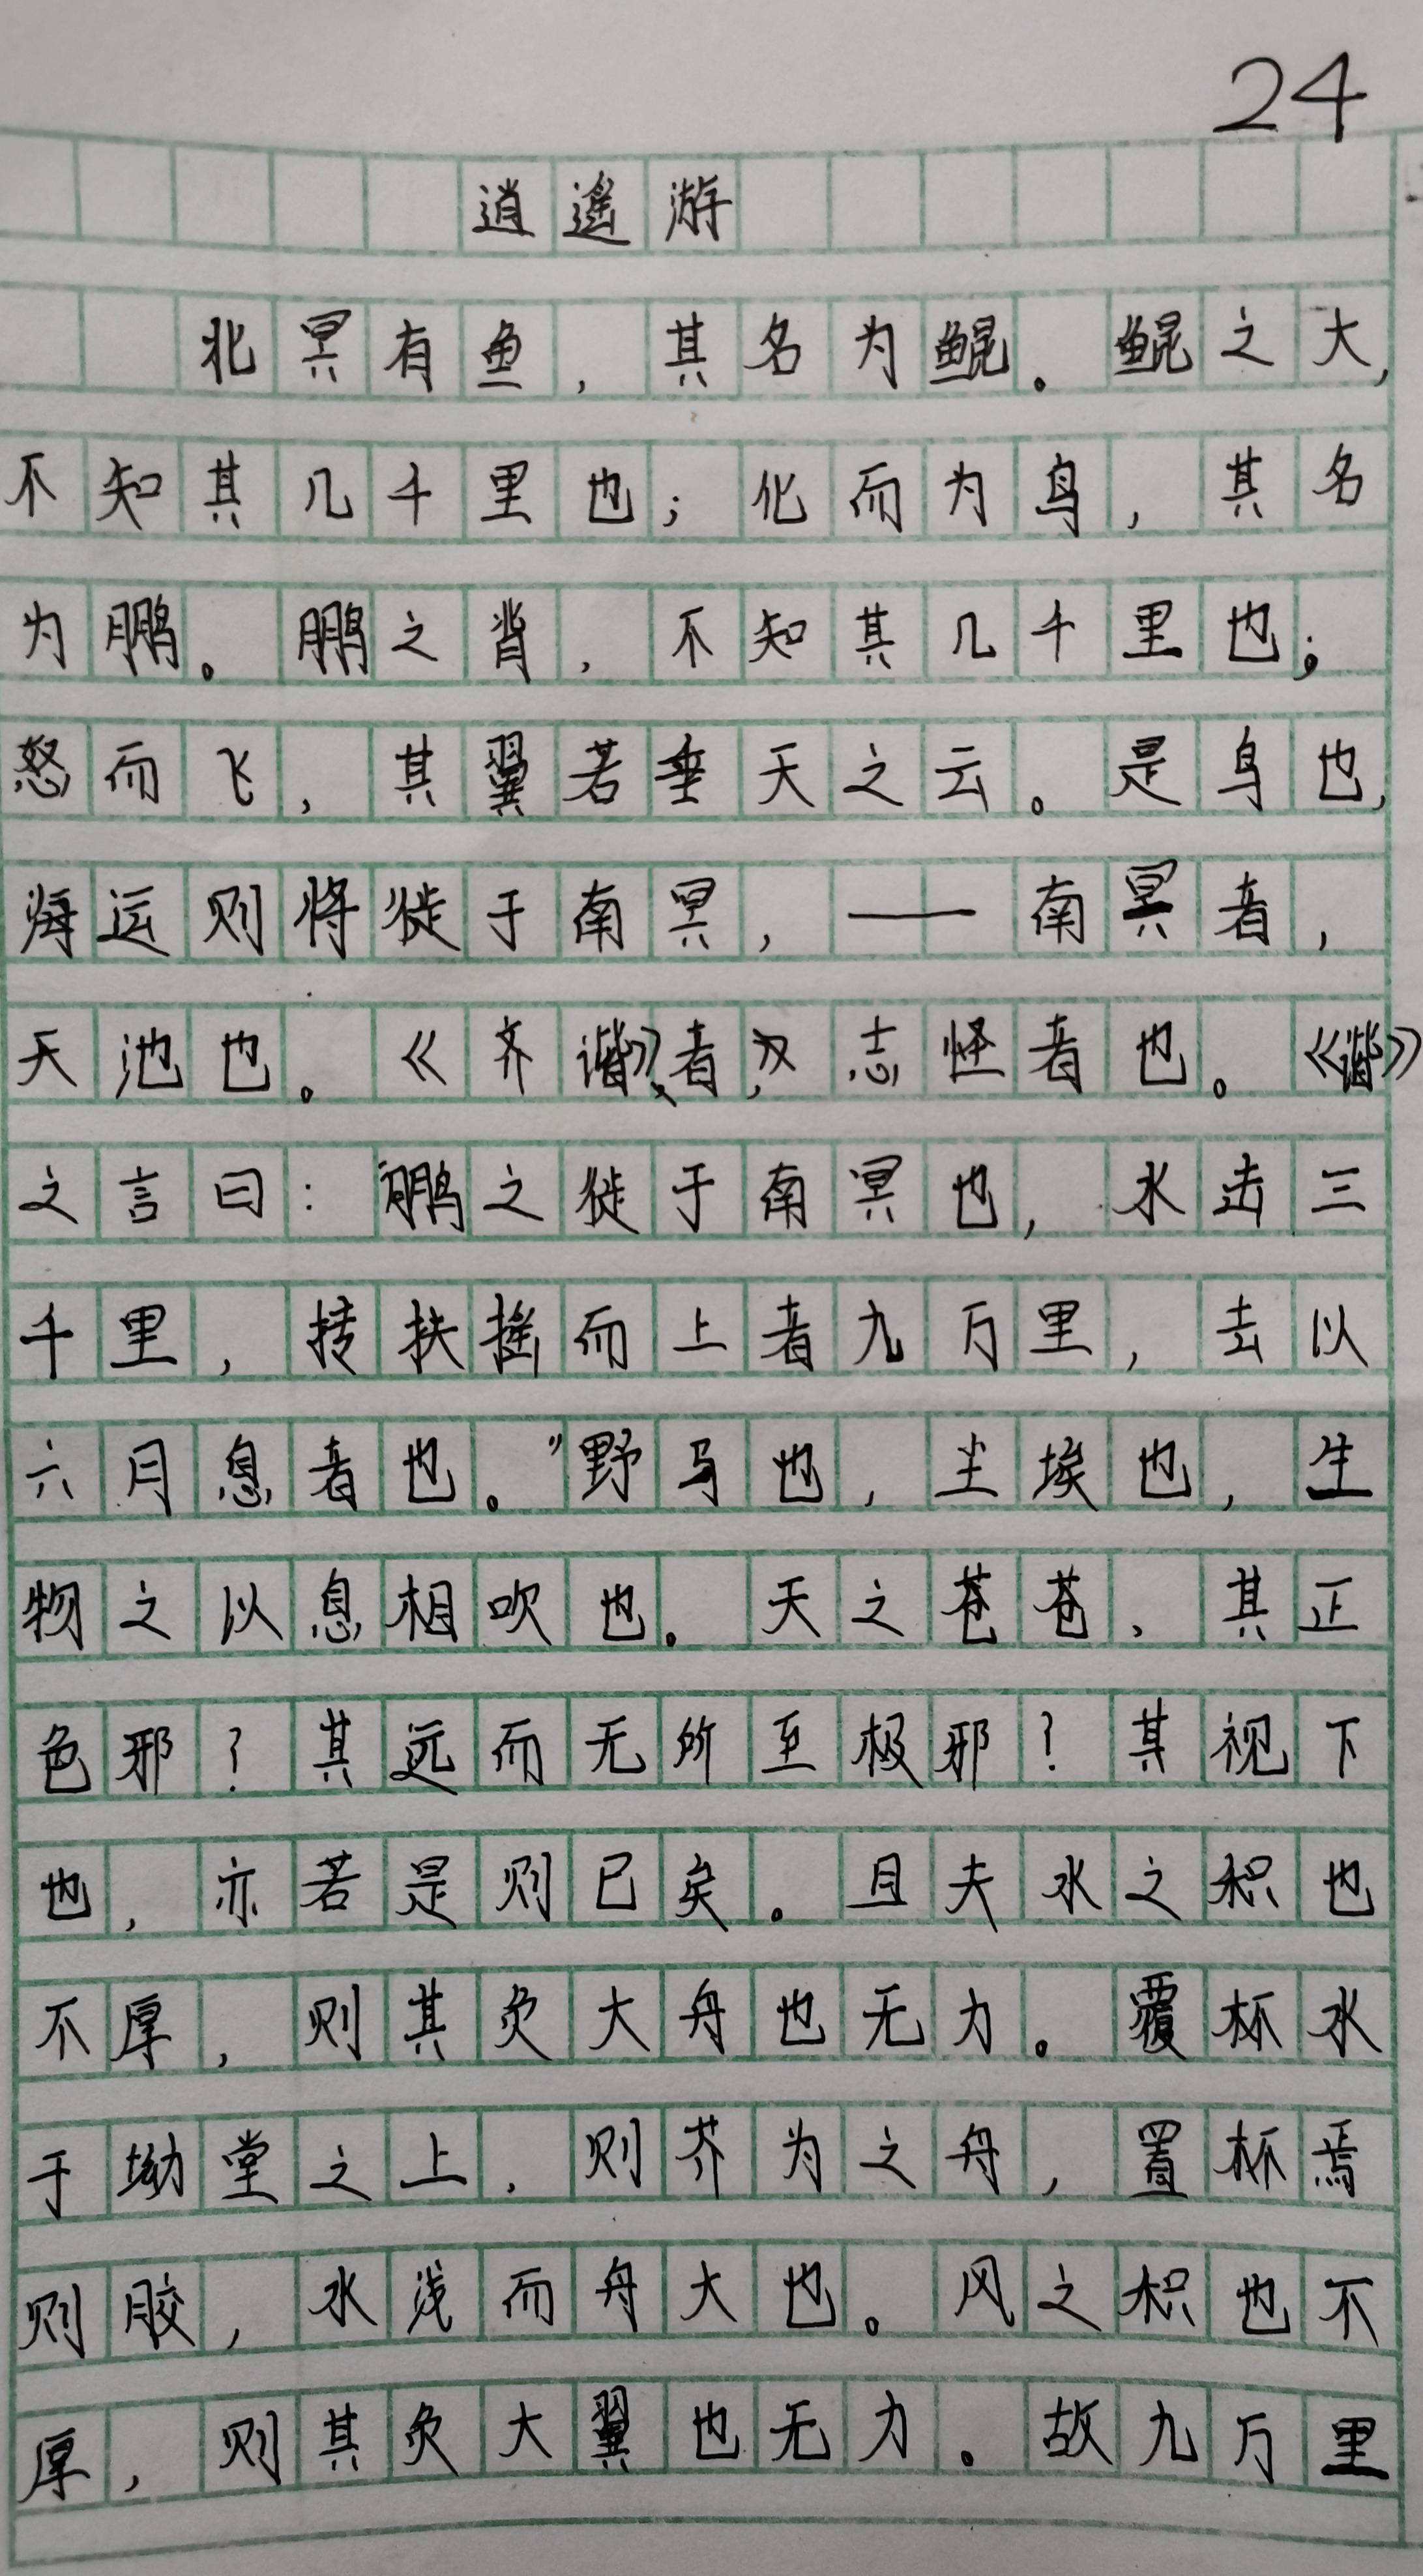 24
逍遥游
北冥有鱼，其名为鲲。鲲之大，
不知其几千里也；化而为鸟，其名
为鹏。鹏之背，不知其几千里也；
怒而飞，其翼若垂天之云。是鸟也，
海运则将徙于南冥，——南冥者，
天池也。《齐谐》者，志怪者也。《谐》
之言曰：鹏之徙于南冥也，水击三
千里，抟扶摇而上者九万里，去以
六月息者也。”野马也，尘埃也，生
物之以息相吹也。天之苍苍，其正
色邪？其远而无所至极邪？其视下
也，亦若是则已矣。且夫水之积也
不厚，则其负大舟也无力。覆杯水
于坳堂之上，则芥为之舟，置杯焉
则胶，水浅而舟大也。风之积也不
厚，则其负大翼也无力。故九万里